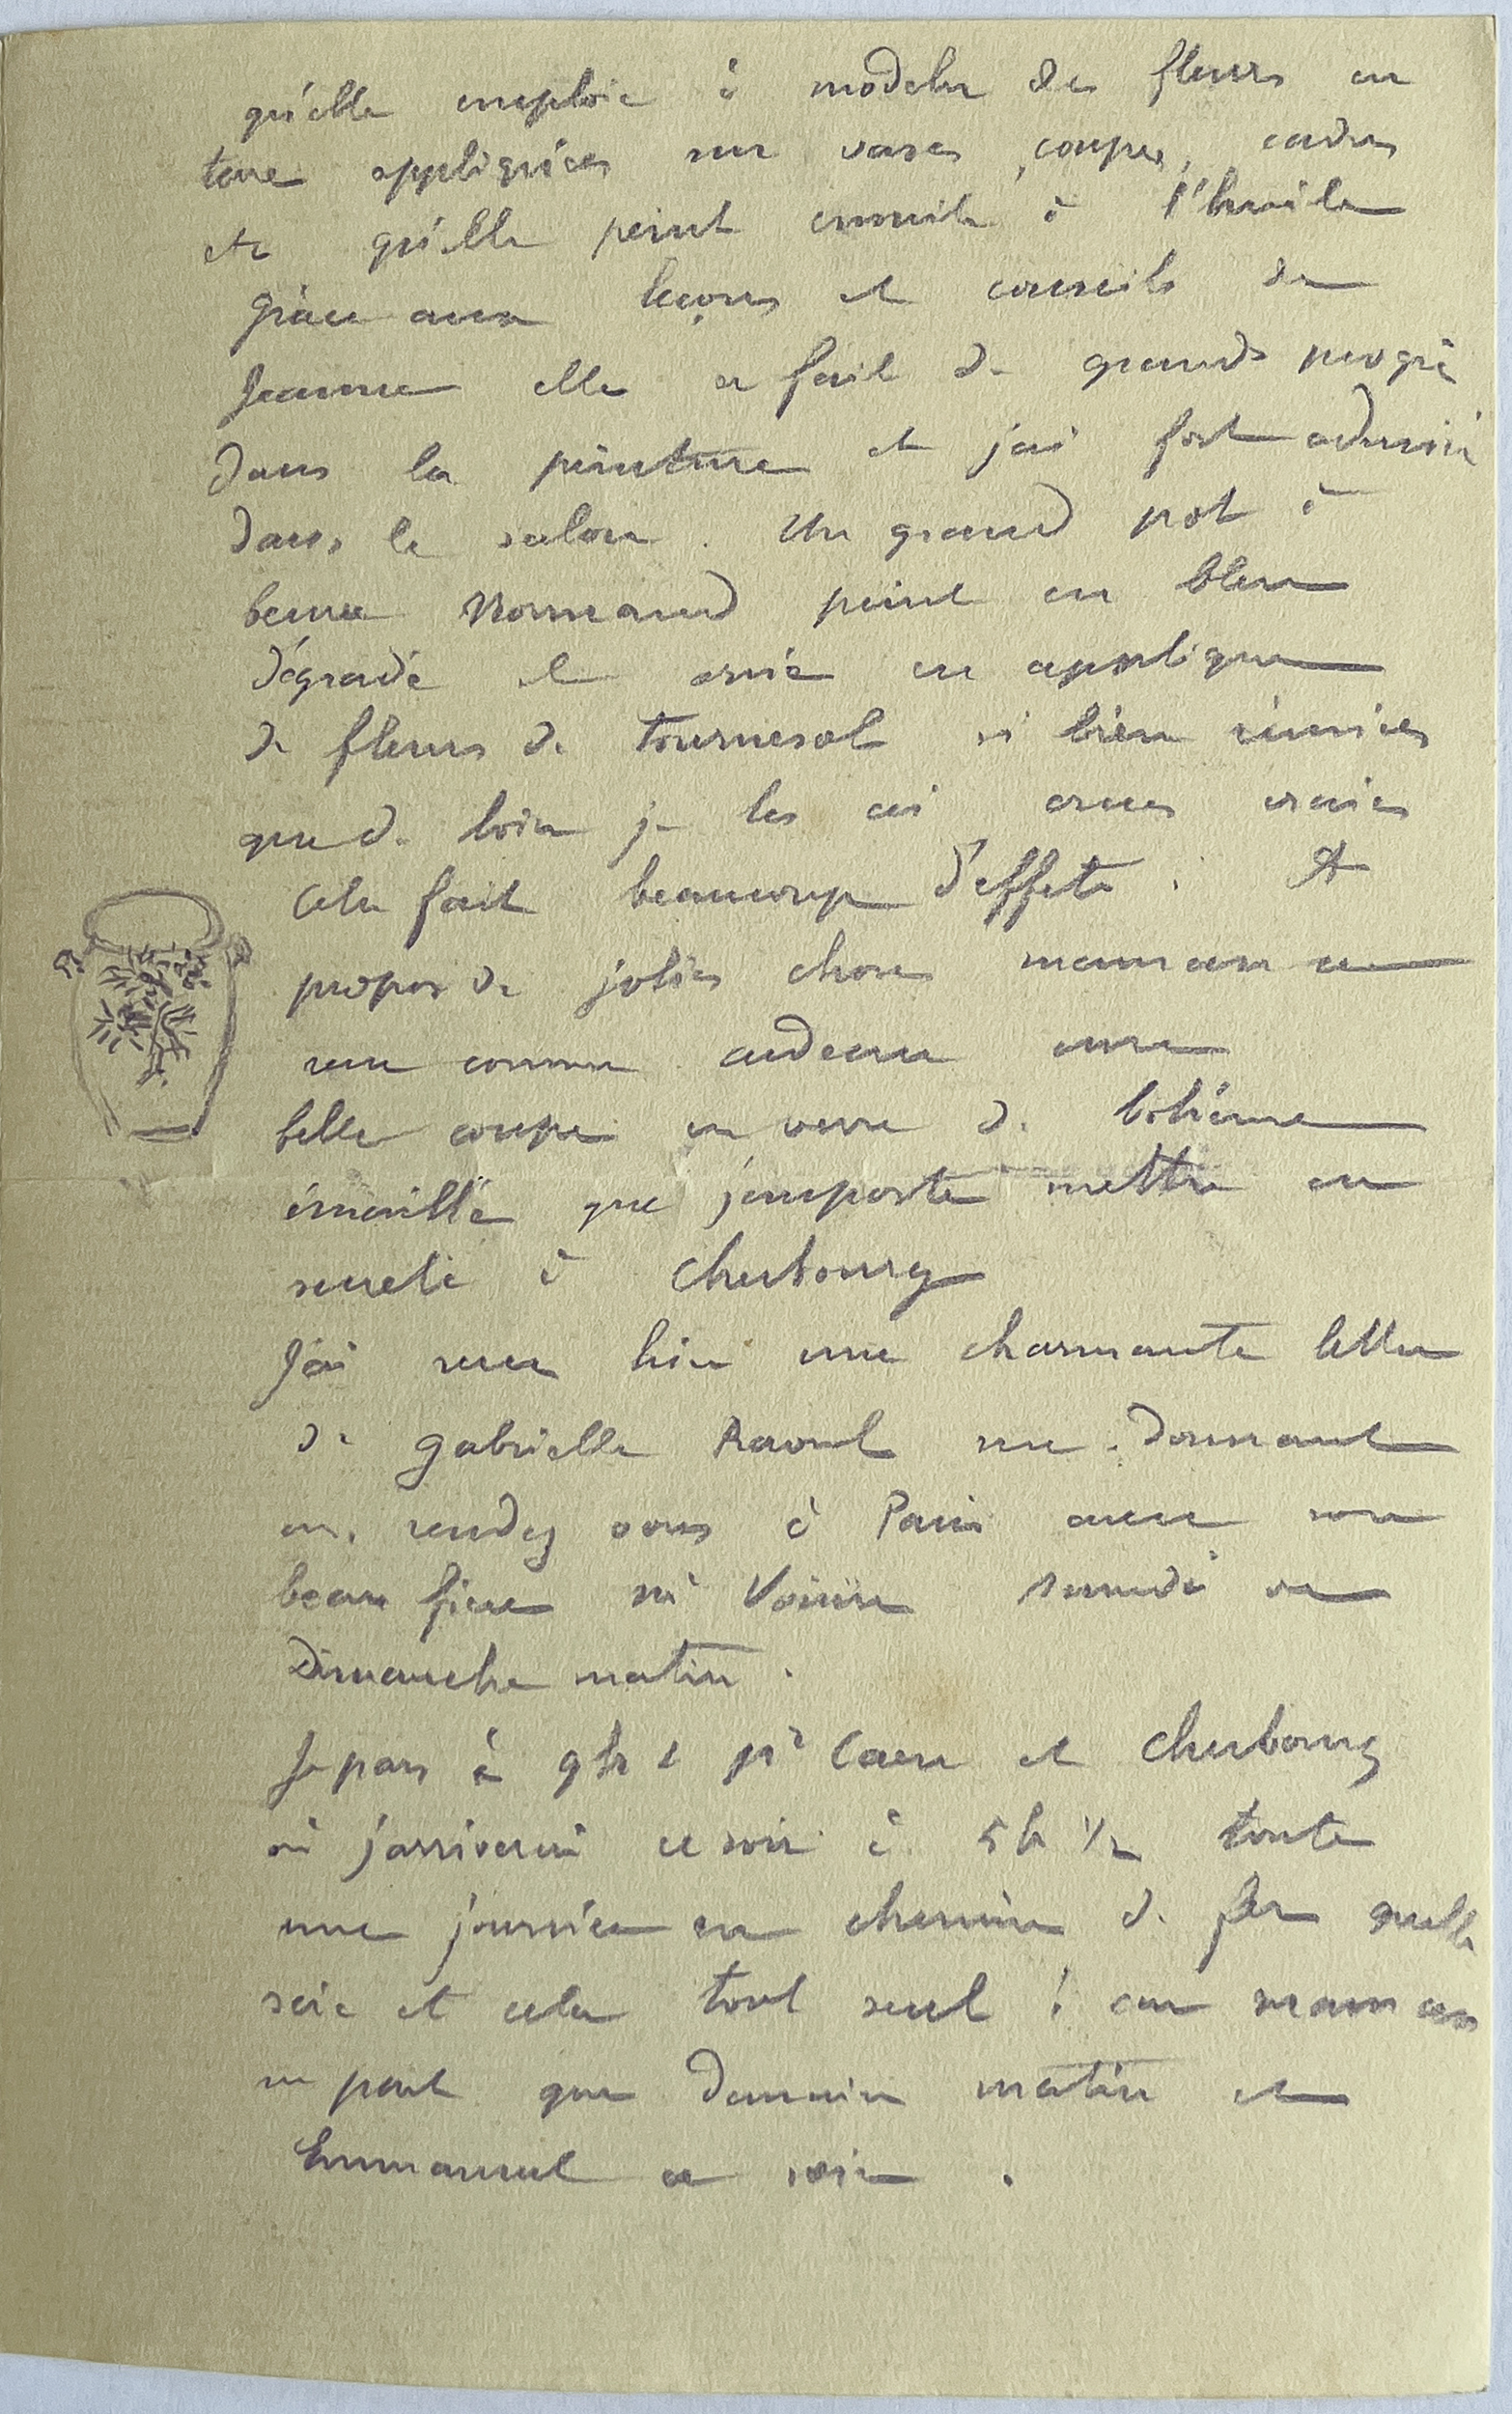 qu'elle emploie à modeler des fleurs en
terre appliquées sur vases, coupes, cadres
etc qu'elle peint ensuite à l'huile
Grâce aux leçons et conseils de
Jeanne elle a fait de grands progrè
dans la peinture et j'ai fort admiré
dans le salon. Un grand pot à
beurre Normand peint en bleu
dégradé et orné en applique
de fleurs de tournesol si bien réunies
que de loin je les ai crues vraies
Cela fait beaucoup d'effet. A
propos de jolies choses maman a
reçu comme cadeau une
belle coupe en verre de bohème
émaillé que j'emporte mettre en
sureté à Cherbourg
J'ai reçu hier une charmante lettre
de Gabrielle Raoul me donnant
un rendez vous à Paris avec son
beau frère Voisin samedi ou
Dimanche matin.
Je pars à 9h pr Caen et Cherbourg
où j'arriverai ce soir à 5h 1/2 toute
une journée en chemin de fer quelle
scie et cela tout seul ! car maman
ne part que demain matin et
Emmanuel ce soir.